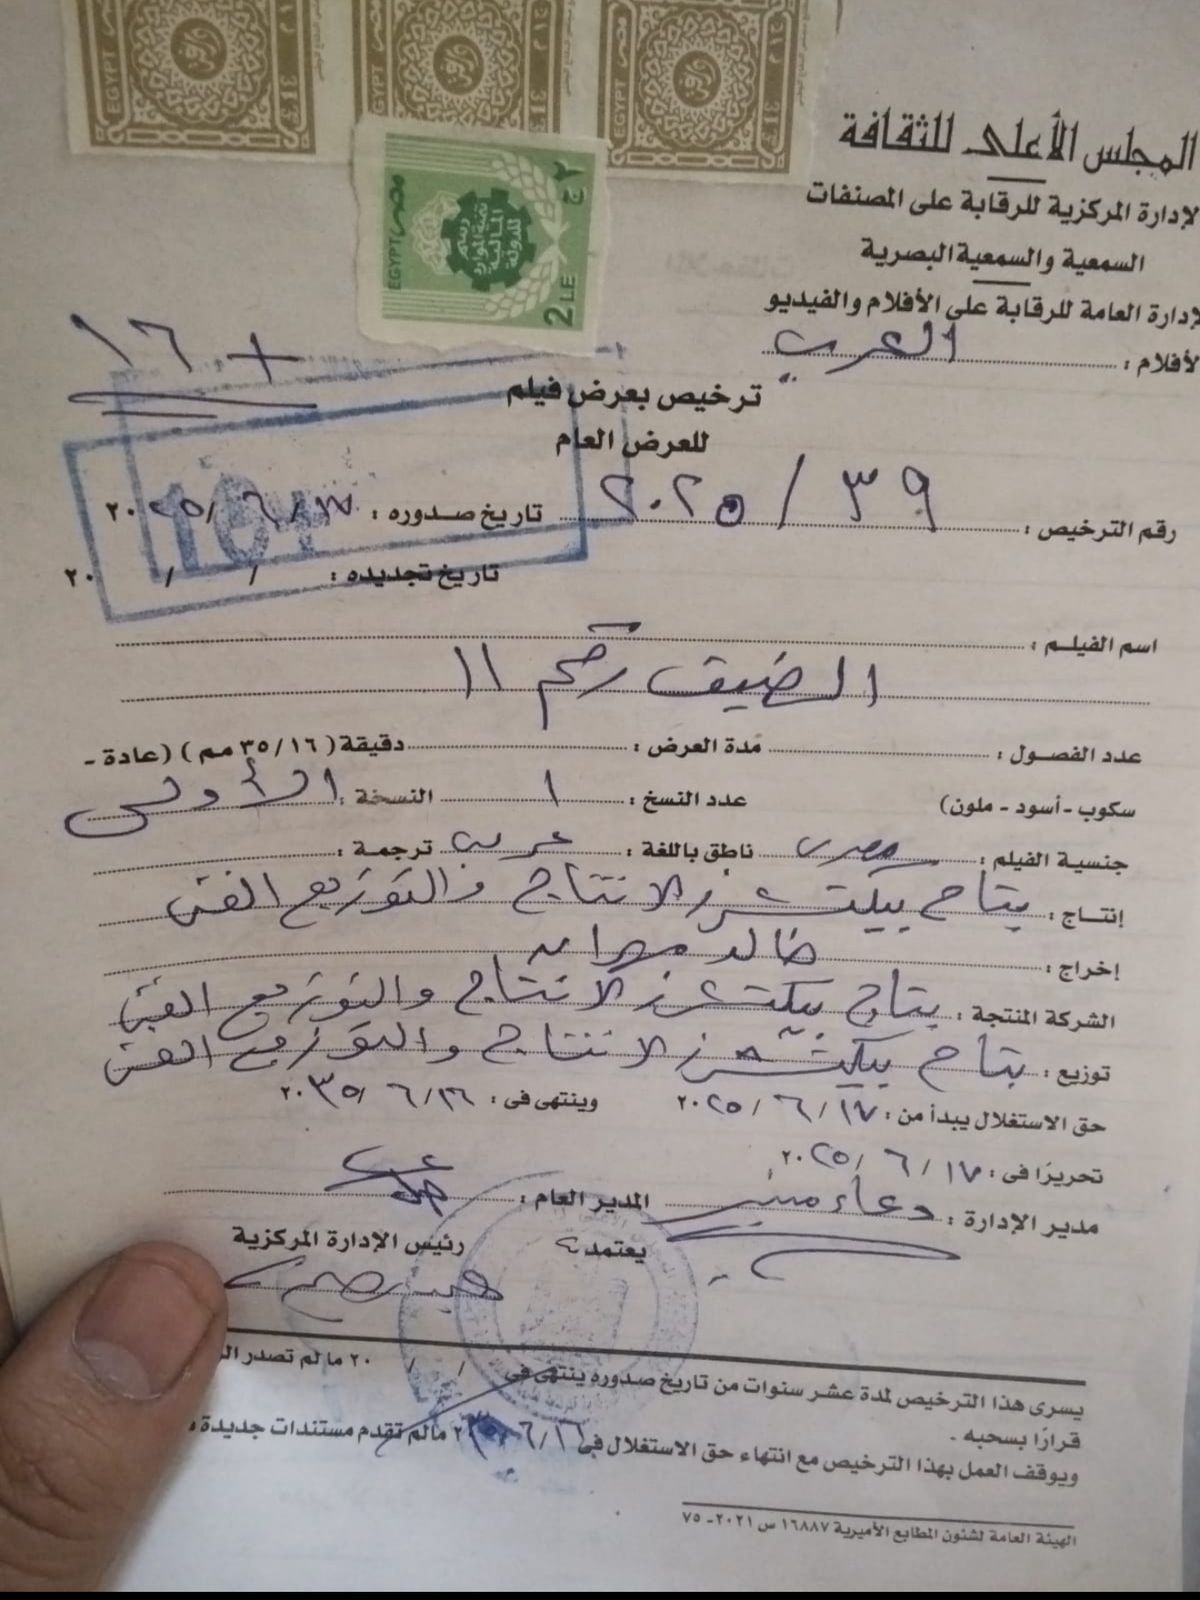 EGYPT
مصر
EGYPT
مصر
EGYPT
مصر
£.1
٢ ج
مصر
رسم
تنمية الموارد
المالية
للدولة
EGYPT
2 LE
المجلس الأعلى للثقافة
لإدارة المركزية للرقابة على المصنفات
السمعية والسمعية البصرية
لإدارة العامة للرقابة على الأفلام والفيديو
لأفلام : العربي
+ ١٦
ترخيص بعرض فيلم
للعرض العام
رقم الترخيص : ٣٩ / ٢٠٢٥ تاريخ صدوره : ١٧ / ٦ / ٢٠٢٥
104
تاريخ تجديده : / / ٢٠
اسم الفيلم :
الضيف رقم ١١
عدد الفصول : مدة العرض : دقيقة ( ٣٥/١٦ مم ) (عادة -
سكوب - أسود - ملون) عدد النسخ : ١ النسخة : الأولى
جنسية الفيلم : مصرى ناطق باللغة : عربى ترجمة :
إنتاج : بتاح بيكتشرز للانتاج والتوزيع الفنى
إخراج : خالد مهران
الشركة المنتجة : بتاح بيكتشرز للانتاج والتوزيع الفنى
توزيع : بتاح بيكتشرز للانتاج والتوزيع الفنى
حق الاستغلال يبدأ من : ١٧ / ٦ / ٢٠٢٥ وينتهى فى : ١٦ / ٦ / ٢٠٣٥
تحريرًا فى : ١٧ / ٦ / ٢٠٢٥
مدير الإدارة : دعاء منير المدير العام :
يعتمد رئيس الإدارة المركزية
يسرى هذا الترخيص لمدة عشر سنوات من تاريخ صدوره ينتهى فى / / ٢٠ ما لم تصدر
قرارًا بسحبه .
ويوقف العمل بهذا الترخيص مع انتهاء حق الاستغلال فى ١٦ / ٦ / مالم تقدم مستندات جديدة
الهيئة العامة لشئون المطابع الأميرية ١٦٨٨٧ س ٢٠٢١- ٧٥